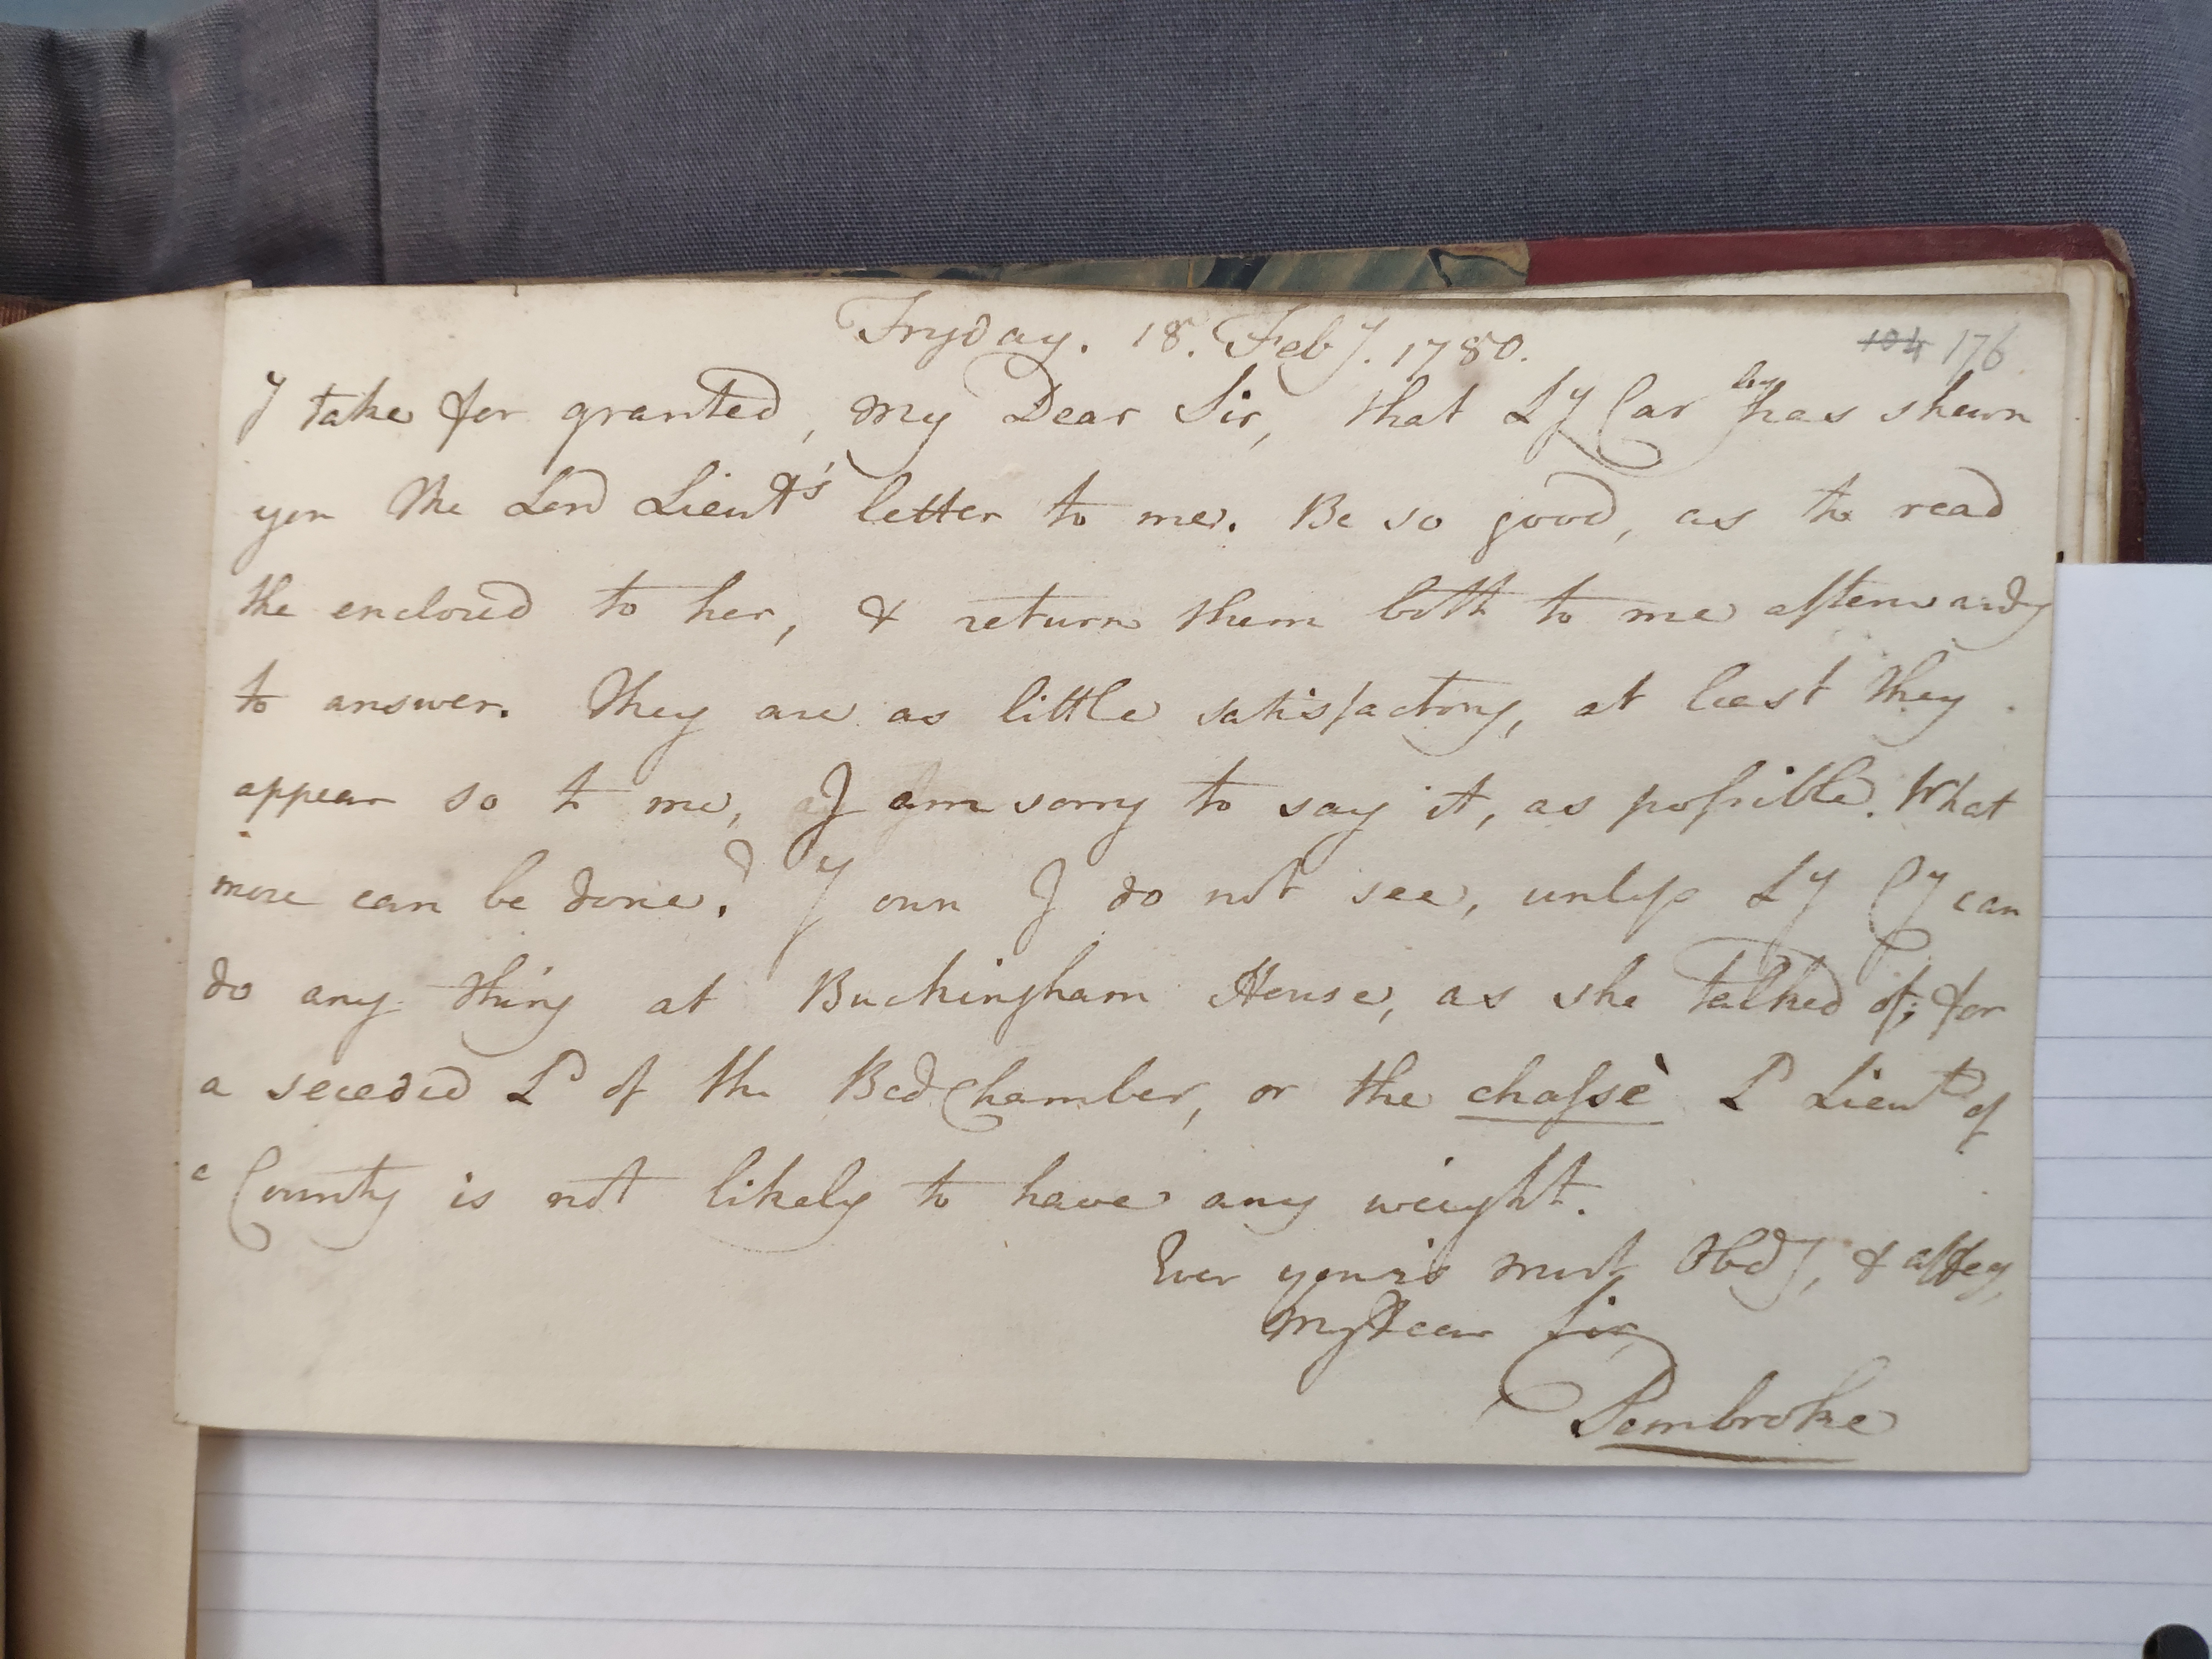 Fryday. 18. Feby. 1780.
104 176
I take for granted, my Dear Sir, that Ly Car has shewn
you the Lord Lieut's letter to me. Be so good, as to read
the enclosed to her, & return them both to me afterwards
to answer. They are as little satisfactory, at least they
appear so to me, I am sorry to say it, as possible. What
more can be done? I own I do not see, unless Ly Cy can
do any thing at Buckingham House, as she talked of; for
a seceded Ld of the Bedchamber, or the chassè Ld Lieut of
a County is not likely to have any weight.
Ever your's most Obdt, & affecy,
My Dear Sir,
Pembroke